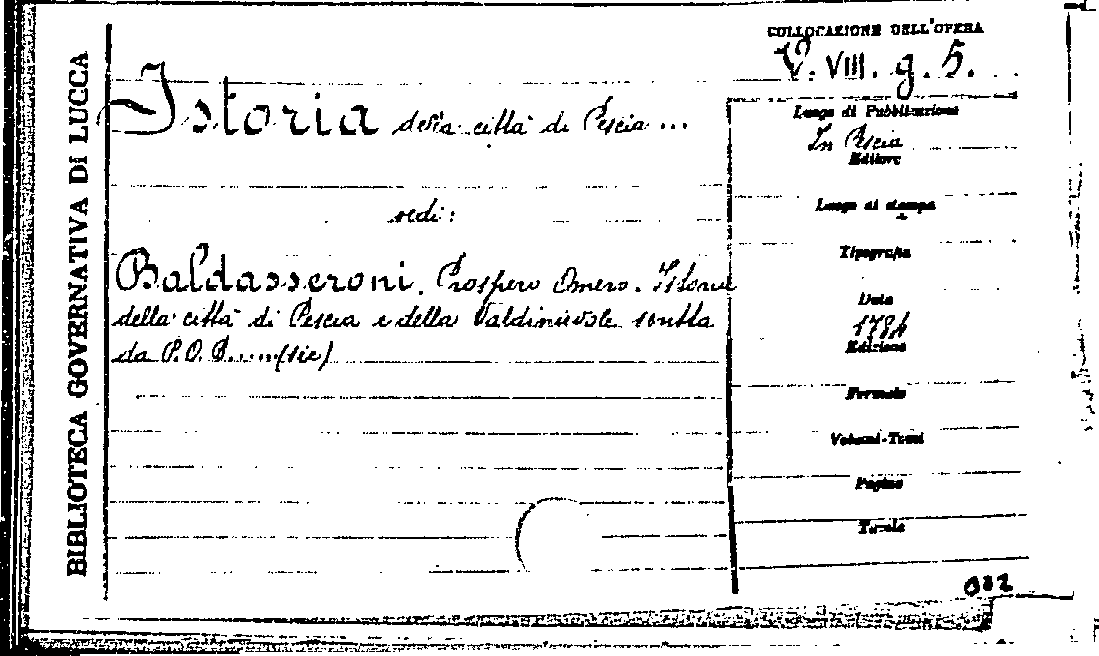 BIBLIOTECA GOVERNATIVA DI LUCCA
COLLOCAZIONE DELL'OPERA
V. VIII. g. 5.
Istoria della città di Pescia ...
vedi:
Baldasseroni. Prospero Omero. Istoria
della città di Pescia e della Valdinievole scritta
da P.O.B.....(sic)
Luogo di Pubblicazione
In Pescia
Editore
Luogo di stampa
Tipografia
Data
1784
Edizione
Formato
Volumi-Tomi
Pagine
Tavole
032